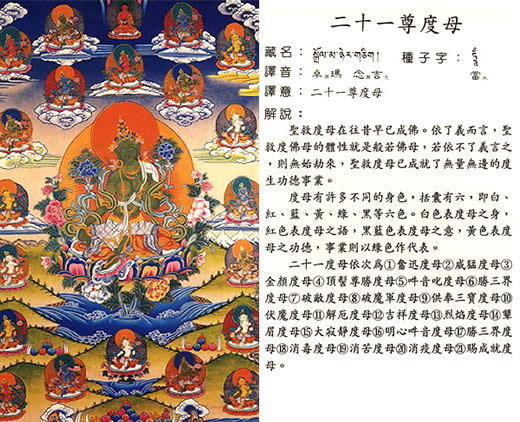 二十一尊度母
藏名：སྒྲོལ་མ་ཉེར་གཅིག།
種子字：
譯音：卓瑪 念吉
當
譯意：二十一尊度母
解說：
聖救度母在往昔早已成佛。依了義而言，聖
救度佛母的體性就是般若佛母，若依不了義言之
，則無始劫來，聖救度母已成就了無量無邊的度
生功德事業。
度母有許多不同的身色，括囊有六，即白、
紅、藍、黃、綠、黑等六色。白色表度母之身，
紅色表度母之語，黑藍色表度母之意，黃色表度
母之功德，事業則以綠色作代表。
二十一度母依次為①奮迅度母②威猛度母③
金顏度母④頂髻尊勝度母⑤吽音叱度母⑥勝三界
度母⑦破敵度母⑧破魔軍度母⑨供奉三寶度母⑩
伏魔度母⑪解厄度母⑫吉祥度母⑬烈焰度母⑭顰
眉度母⑮大寂靜度母⑯明心吽音度母⑰勝三界度
母⑱消毒度母⑲消苦度母⑳消疫度母㉑賜成就度
母。